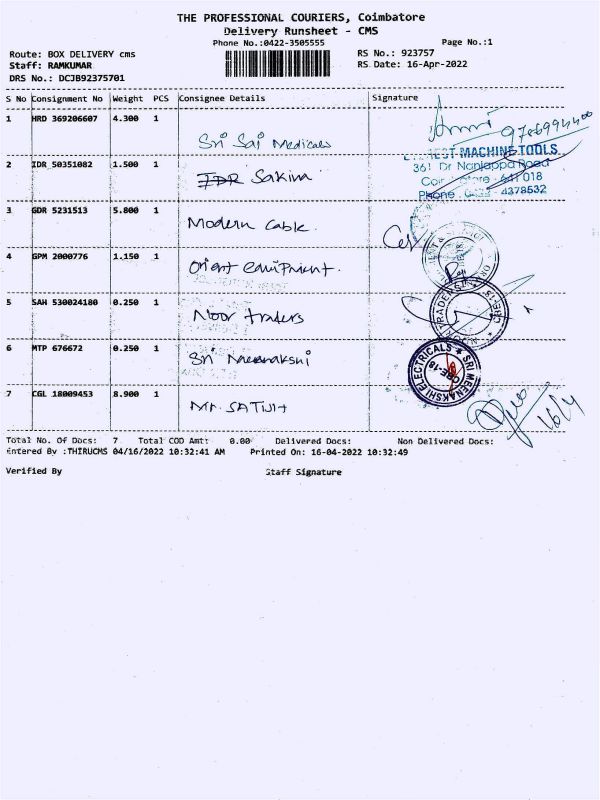 THE PROFESSIONAL COURIERS, Coimbatore
Delivery Runsheet - CMS
Phone No.:0422-3505555
Page No.:1
Route: BOX DELIVERY cms
RS No.: 923757
Staff: RAMKUMAR
RS Date: 16-Apr-2022
DRS No.: DCJB92375701
S No Consignment No Weight PCS Consignee Details Signature
1 HRD 369206607 4.300 1
Sri Sai Medicals
2 IDR 50351082 1.500 1
IDR Sakina
MACHINE TOOLS
361 Dr Nanjappa Road
641 018
Phone 4378532
3 GDR 5231513 5.800 1
Modern Cable
4 GPM 2000776 1.150 1
Orient equipment.
5 SAH 530024180 0.250 1
Noor traders
6 MTP 676672 0.250 1
Sri Meenakshi
SRI MEENAKSHI ELECTRICALS
CBE-18
7 CGL 18009453 8.900 1
Mr. SATISH
16/4
Total No. Of Docs: 7 Total COD Amt: 0.00 Delivered Docs: Non Delivered Docs:
Entered By :THIRUCMS 04/16/2022 10:32:41 AM Printed On: 16-04-2022 10:32:49
Verified By Staff Signature